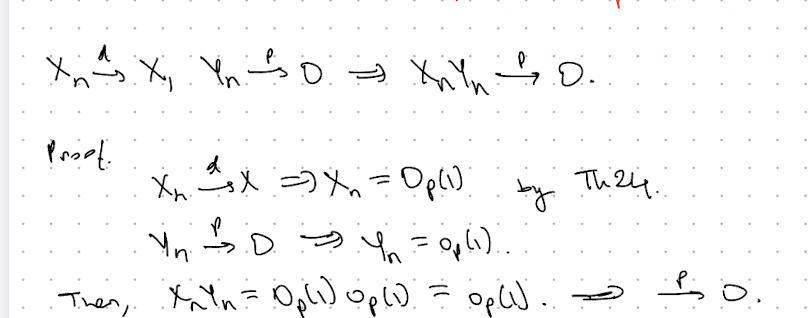 Xₙ →ᵈ X, Yₙ →ᵖ 0 ⇒ XₙYₙ →ᵖ 0.
Proof.
Xₙ →ᵈ X ⇒ Xₙ = Oₚ(1) by Th 24.
Yₙ →ᵖ 0 ⇒ Yₙ = oₚ(1).
Then, XₙYₙ = Oₚ(1) oₚ(1) = oₚ(1). ⇒ →ᵖ 0.